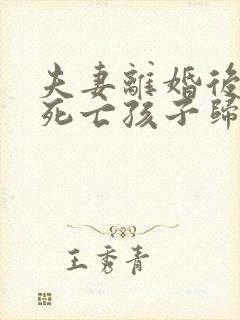 夫妻離婚後
死亡孩子歸
王秀青